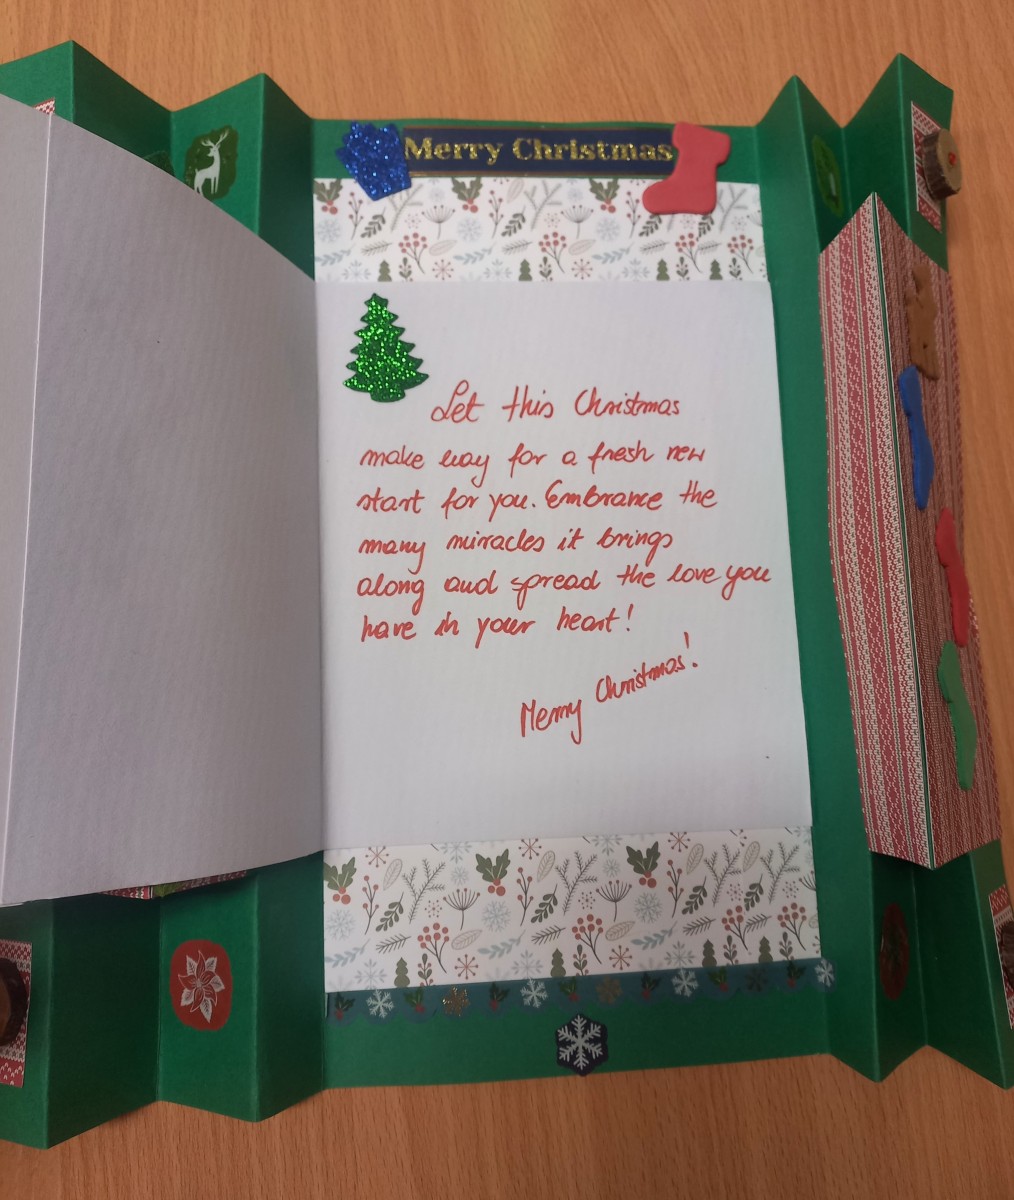 Merry Christmas
Let this Christmas
make way for a fresh new
start for you. Embrance the
many miracles it brings
along and spread the love you
have in your heart!
Merry Christmas!